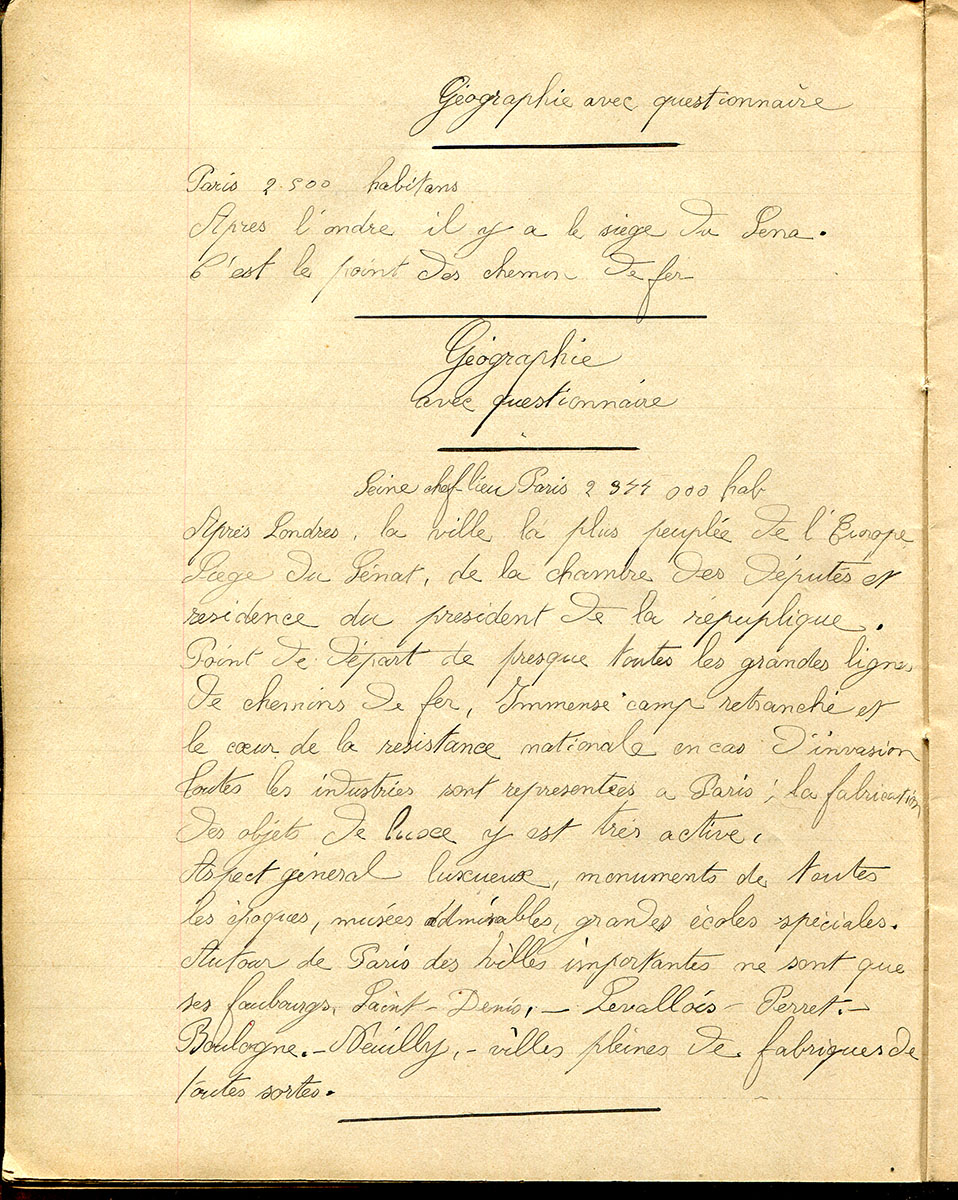 Géographie avec questionnaire
Paris 2.500 habitans
Apres l'ondre il y a le siege du Sena.
C'est le point des chemin de fer
Géographie
avec questionnaire
Seine chef-lieu Paris 2 344 000 hab
Après Londres, la ville la plus peuplée de l'Europe
Siège du Sénat, de la chambre des députés et
residence du president de la répuplique.
Point de départ de presque toutes les grandes lignes
de chemins de fer, Immense camp retranché et
le cœur de la resistance nationale en cas d'invasion
toutes les industries sont representées a Paris ; la fabrication
des objets de luxe y est très active,
Aspect géneral luxueux, monuments de toutes
les époques, musées admirables, grandes écoles spéciales.
Autour de Paris des villes importantes ne sont que
ses faubourgs, Saint-Denis, - Levallois-Perret. -
Boulogne. - Neuilly, - villes pleines de fabriques de
toutes sortes.